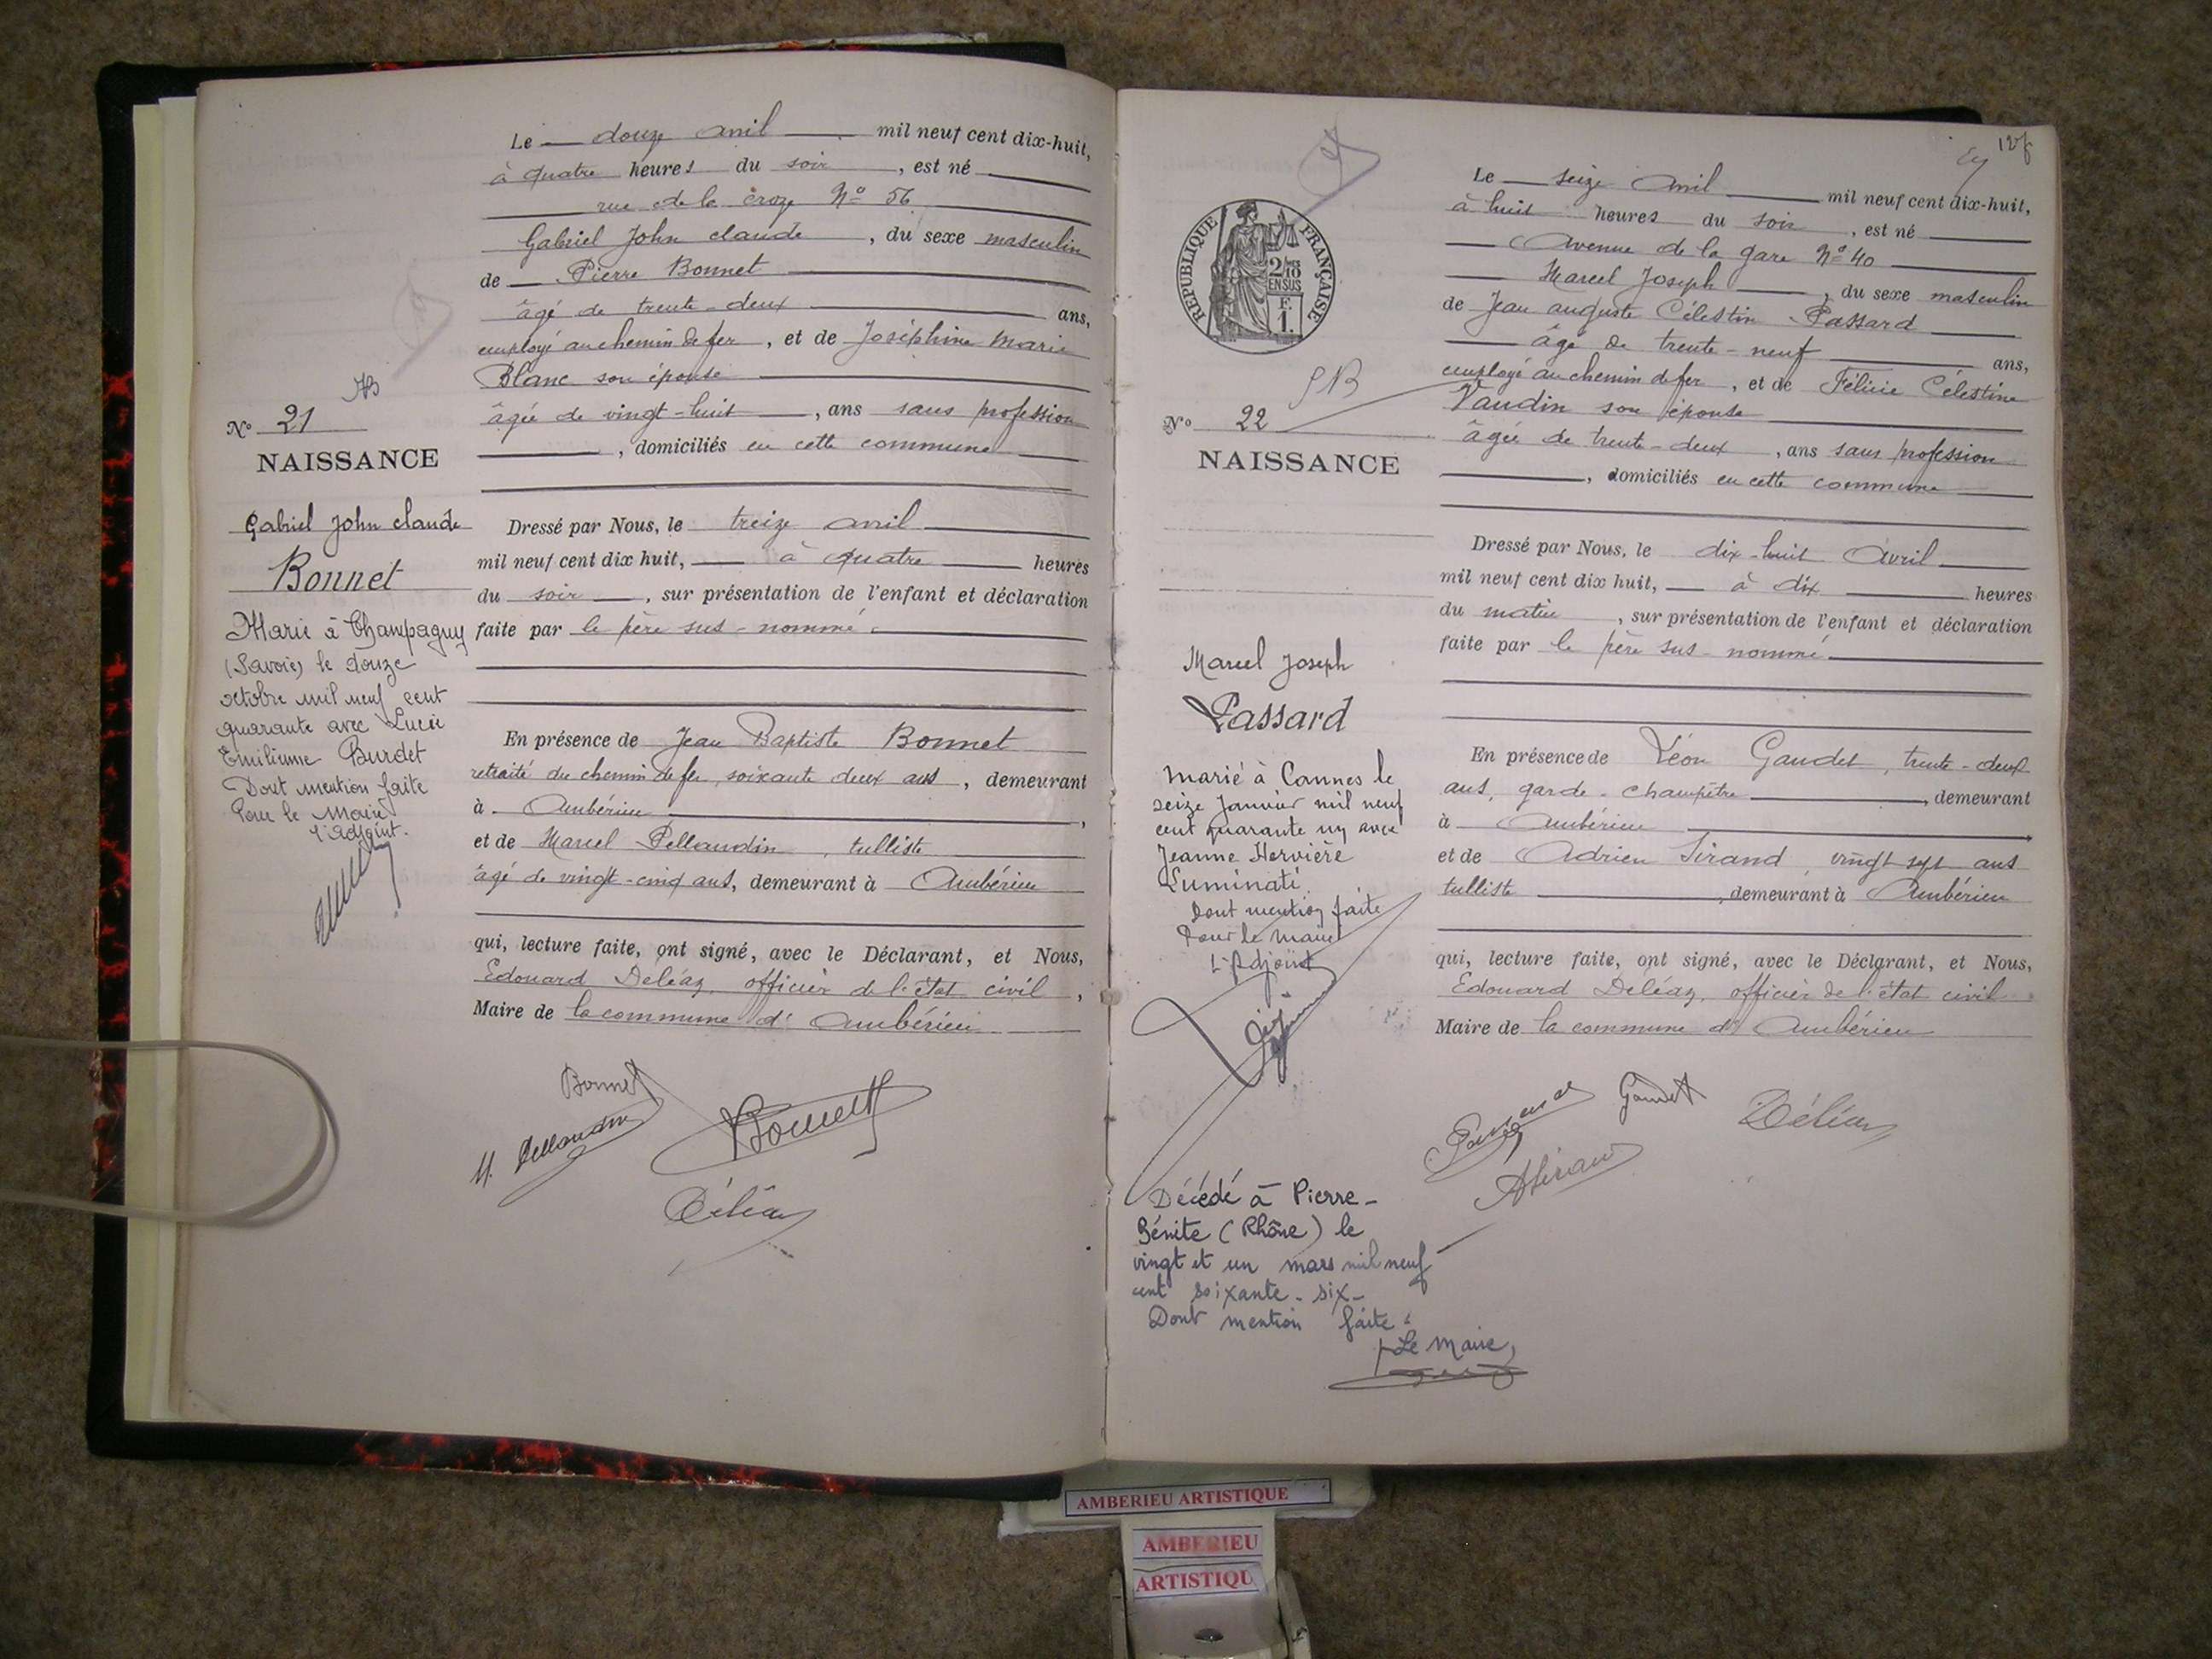 Le douze avril mil neuf cent dix-huit,
à quatre heures du soir, est né
rue de la croze N° 56
Gabriel John claude, du sexe masculin
de Pierre Bonnet
âgé de trente-deux ans,
employé au chemin de fer, et de Joséphine Marie
Blanc son épouse
âgée de vingt-huit, ans sans profession
, domiciliés en cette commune
Dressé par Nous, le treize avril
mil neuf cent dix huit, à quatre heures
du soir, sur présentation de l'enfant et déclaration
faite par le père sus-nommé.
En présence de Jean Baptiste Bonnet
retraité du chemin de fer, soixante deux ans, demeurant
à Ambérieu,
et de Marcel Pellaudin, tulliste
âgé de vingt-cinq ans, demeurant à Ambérieu
qui, lecture faite, ont signé, avec le Déclarant, et Nous,
Edouard Deléaz, officier de l'état civil,
Maire de la commune d'Ambérieu
Bonnet
M. Pellaudin
Bonnet
Déléaz
N° 21
NAISSANCE
Gabriel John claude
Bonnet
Marié à Champagny
(Savoie) le douze
octobre mil neuf cent
quarante avec Lucie
Emilienne Burdet
Dont mention faite
Pour le Maire
l'adjoint.
Le seize avril mil neuf cent dix-huit,
à huit heures du soir, est né
Avenue de la gare N° 40
Marcel Joseph, du sexe masculin
de Jean auguste Célestin Passard
âgé de trente-neuf ans,
employé au chemin de fer, et de Félicie Célestine
Vaudin son épouse
âgée de trente-deux, ans sans profession
, domiciliés en cette commune
Dressé par Nous, le dix-huit Avril
mil neuf cent dix huit, à dix heures
du matin, sur présentation de l'enfant et déclaration
faite par le père sus-nommé
En présence de Léon Gaudet, trente-deux
ans, garde-champêtre, demeurant
à Ambérieu
et de Adrien Sirand, vingt sept ans
tulliste, demeurant à Ambérieu
qui, lecture faite, ont signé, avec le Déclarant, et Nous,
Edouard Deléaz, officier de l'état civil
Maire de la commune d'Ambérieu
Passard
Gaudet
Déléaz
ASirand
REPUBLIQUE FRANÇAISE
2/10
EN SUS
F.
1.
N° 22
NAISSANCE
Marcel Joseph
Passard
Marié à Cannes le
seize janvier mil neuf
cent quarante un avec
Jeanne Hervière
Luminati.
Dont mention faite
Pour le maire
L'Adjoint
Décédé à Pierre-
Bénite (Rhône) le
vingt et un mars mil neuf
cent soixante-six-
Dont mention faite.
Le Maire,
AMBERIEU ARTISTIQUE
AMBERIEU
ARTISTIQU